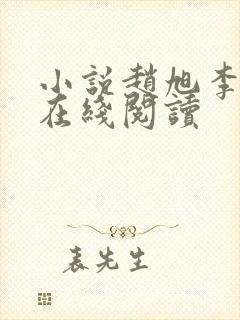 小說趙旭李
在綫閱讀
表先生